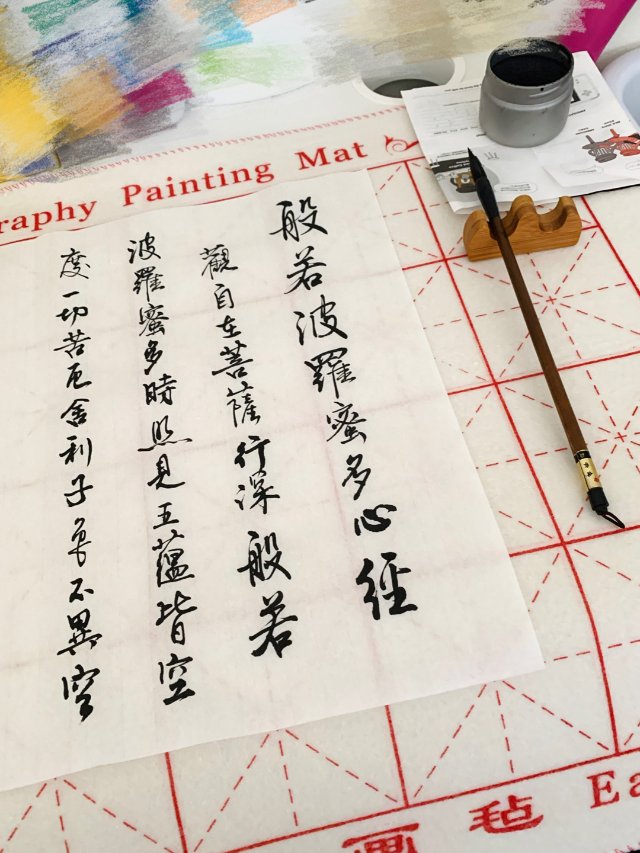 raphy Painting Mat
般若波羅蜜多心經
觀自在菩薩行深般若
波羅蜜多時照見五蘊皆空
度一切苦厄舍利子色不異空
画毡 Ea